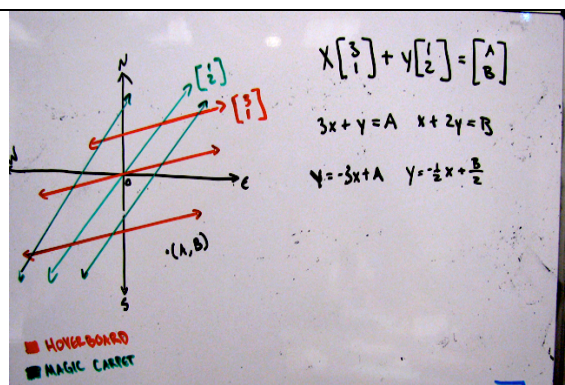 N
[1 2]
[3 1]
W
O
E
.(A,B)
S
HOVERBOARD
MAGIC CARPET
X[3 1] + Y[1 2] = [A B]
3x + y = A x + 2y = B
y = -3x + A y = -1/2 x + B/2